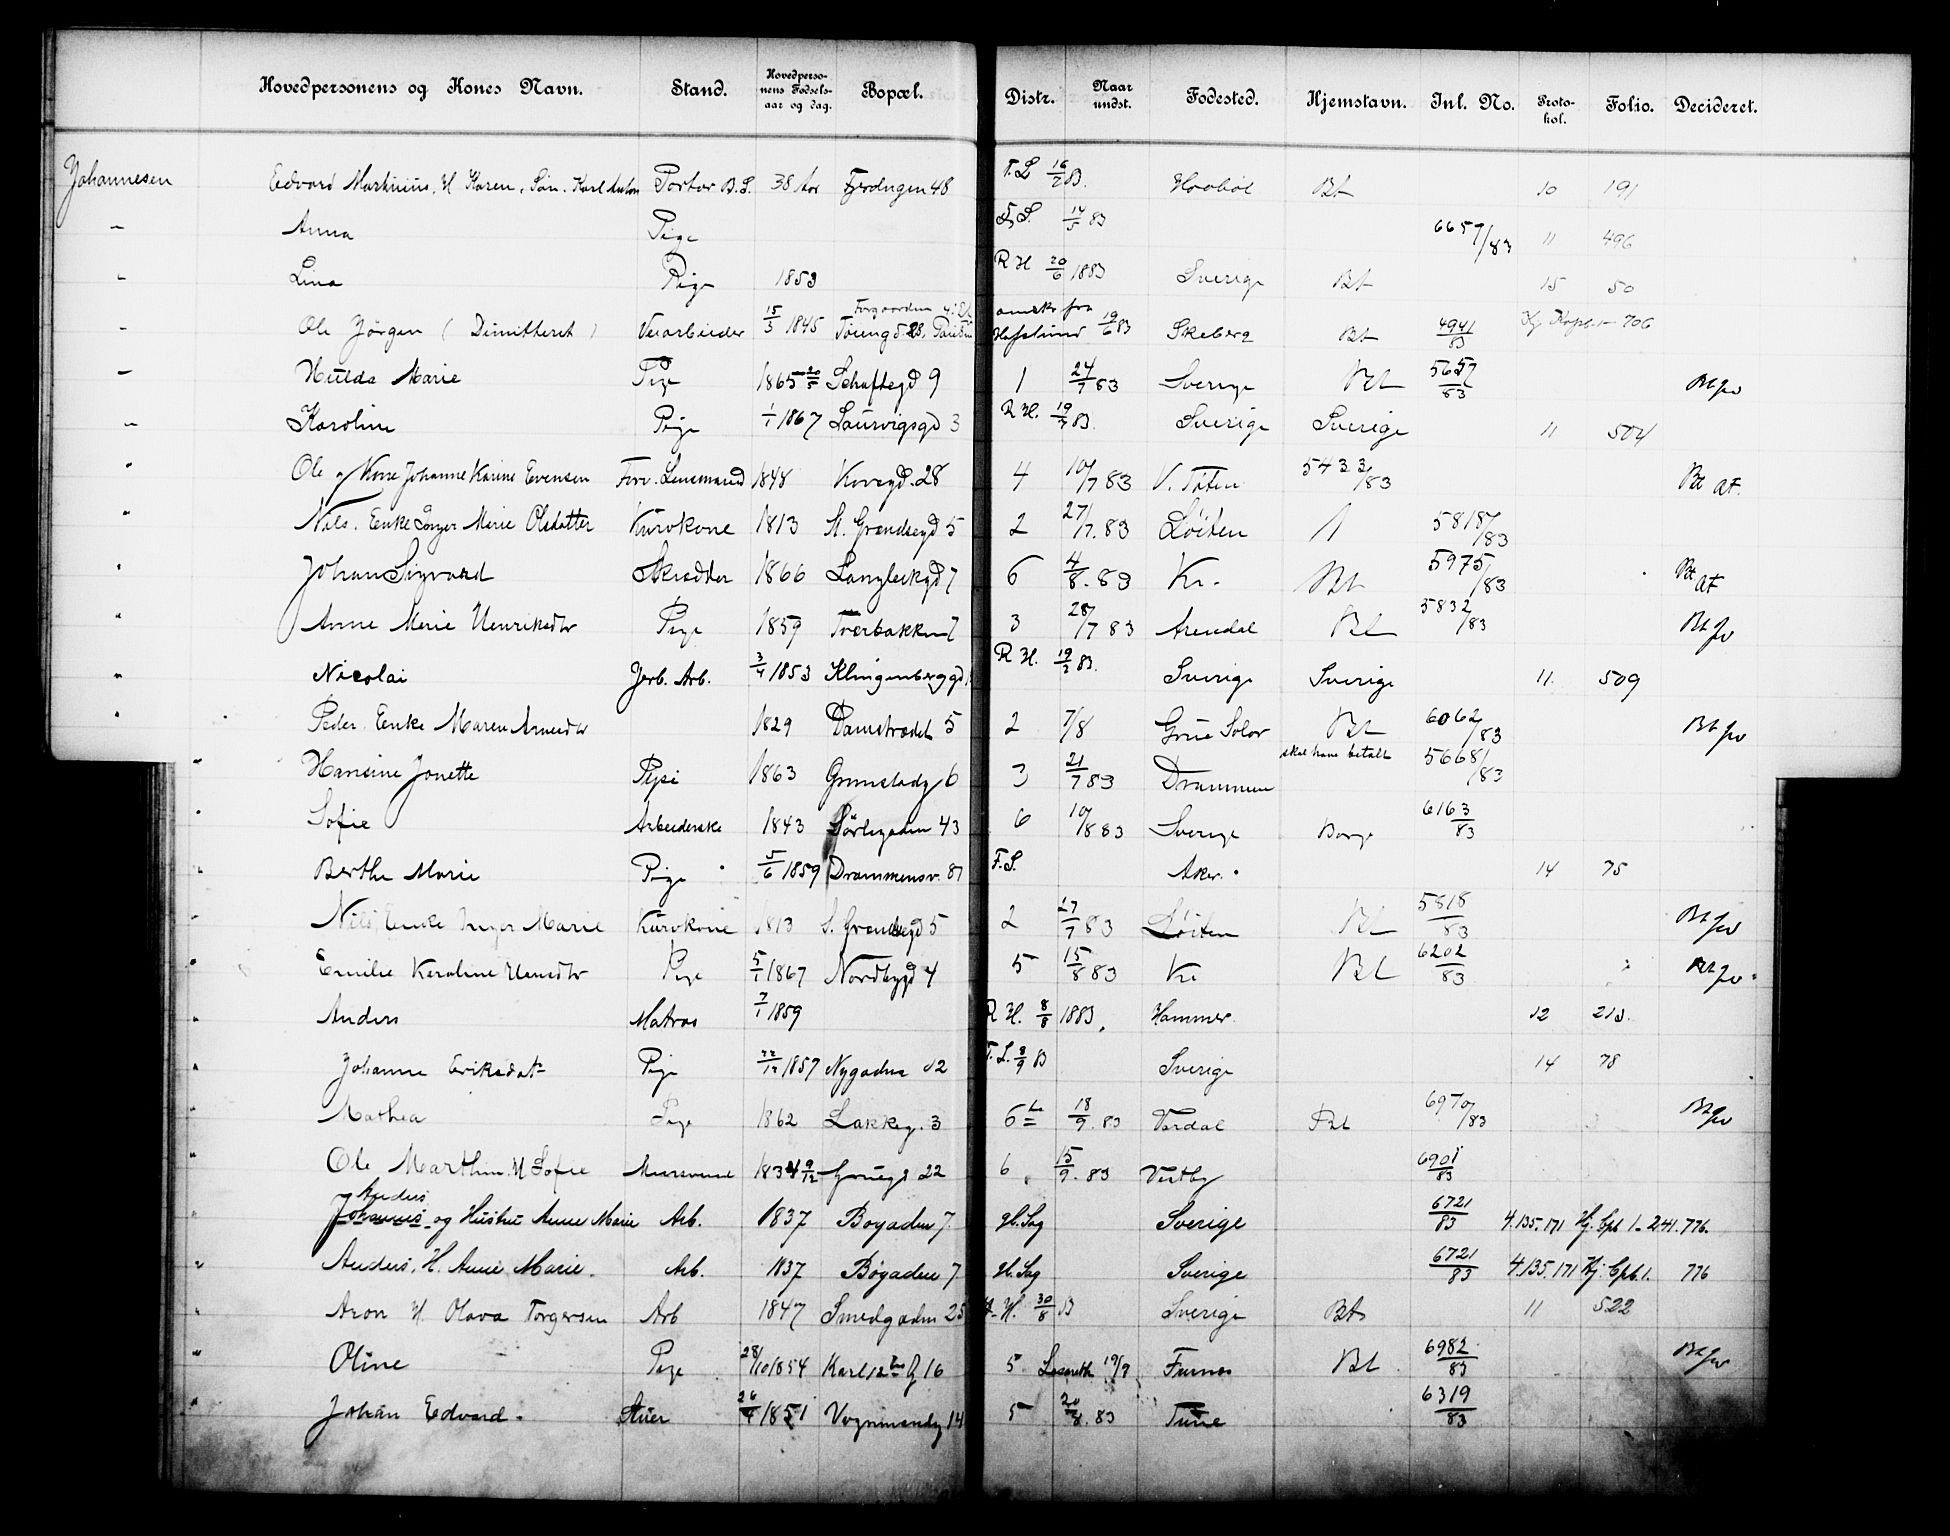 Hovedpersonens og Kones Navn. Stand. Hovedpersonens Fødselsaar og dag. Bopæl. Distr. Naar undst. Fødested. Hjemstavn. Inl. No. Protokol. Folio. Decideret.
Johannesen Edvard Martinius, H Karen, Søn. Karl Anton Portør B.S. 38 Aar 48 F.L 16/2 83. Haabøl Bt 10 191
" Anna Pige F.L. 14/5 83 6657/83 11 496
" Lina Pige 1853 R H 20/6 1883 Sverige Bt 15 50
Forgaarden
" Ole Jørgen (Dimitteret) 15/3 1845 Tøiengd 28, Hafslund 19/6 83 Skeberg Bt 4941/83 706
" Hulda Marie Pige 1865 20/5 Schaftegd 9 1 24/7 83 Sverige Bt 5657/83 Bt
" Karoline Pige 1/1 1867 Laurvigsgd 3 R H. 19/7 83. Sverige Sverige 11 504
" Ole og Kone Johanne Karine Evensen Forv. Lensmand 1848 28 4 10/7 83 V. Toten 5433/83 Bt at.
" Nils. Enke Inger Marie Olsdatter Kurvkone 1813 St. Grændsegd 5 2 27/7. 83 Løiten 5818/83
" Johan Sigvard Skrædder 1866 Langleikgd 7 6 4/8. 83 Kr. Bt 5975/83 Bt at
" Anne Marie Henriksdtr Pige 1859 Tværbakken 7 3 28/7 83 Arendal Bt 5832/83 Bt
" Nicolai Jerb. Arb. 3/4 1853 Klingenberggd R H. 19/7 83. Sverige Sverige 11. 509
" Peder. Enke Maren Arnesdtr 1829 Damstrædet 5 2 7/8 Grue Solør Bt 6062/83 Bt
skal have betalt
" Hansine Jonette Pige 1863 Grimstadg 6 3 21/7 83 Drammen 5668/83
" Sofie Arbeiderske 1843 Sørligaden 43 6 10/8 83 Sverige Borge 6163/83
" Berthe Marie Pige 5/6 1859 Drammensv. 87 F.L. Aker. 14 75
" Nils Enke Inger Marie Kurvkone 1813 S. Grændsegd 5 2 27/7 83 Løiten Bt 5818/83 Bt
" Emilie Karoline Hansdtr Pige 5/1 1867 Nordbygd 4 5 15/8 83 Kr Bt 6202/83 Bt
" Anders Matros 7/1 1859 R H. 8/8 1883. Hammer. 12 213.
" Johanne Eriksdat Pige 22/12 1857 Nygaden 12 F.L. 8/9 83 Sverige 14 78
" Mathea Pige 1862 Lakkeg. 3 6te 18/9. 83 Vardal Bt 6970/83 Bt
" Ole Marthin, H Sofie Murersvend 1834 9/12 Gruegd 22 6 15/9. 83 Vestby 6901/83
Anders
" Johannes og Hustru Anne Marie Arb. 1837 Bøgaden 7. gl. Sag Sverige 6721/83 4.135.171 Hj. Cpb 1- 241. 776.
" Anders, H. Anne Marie. Arb. 1837 Bøgaden 7. gl. Sag Sverige 6721/83 4.135.171 Hj. Cpb. 1. 776
" Aron H. Olava Torgersen Arb 1847 Smedgaden 25 R. H. 30/8 83 Sverige Bt 11 522
" Oline Pige 28/10 1854 Karl 12tes G 16 5 Lazareth 19/9 Furnes Bt 6982/83 Bt
" Johan Edvard. 26/4 1851 Vognmandsg 14 5 20/8. 83 Tune 6319/83